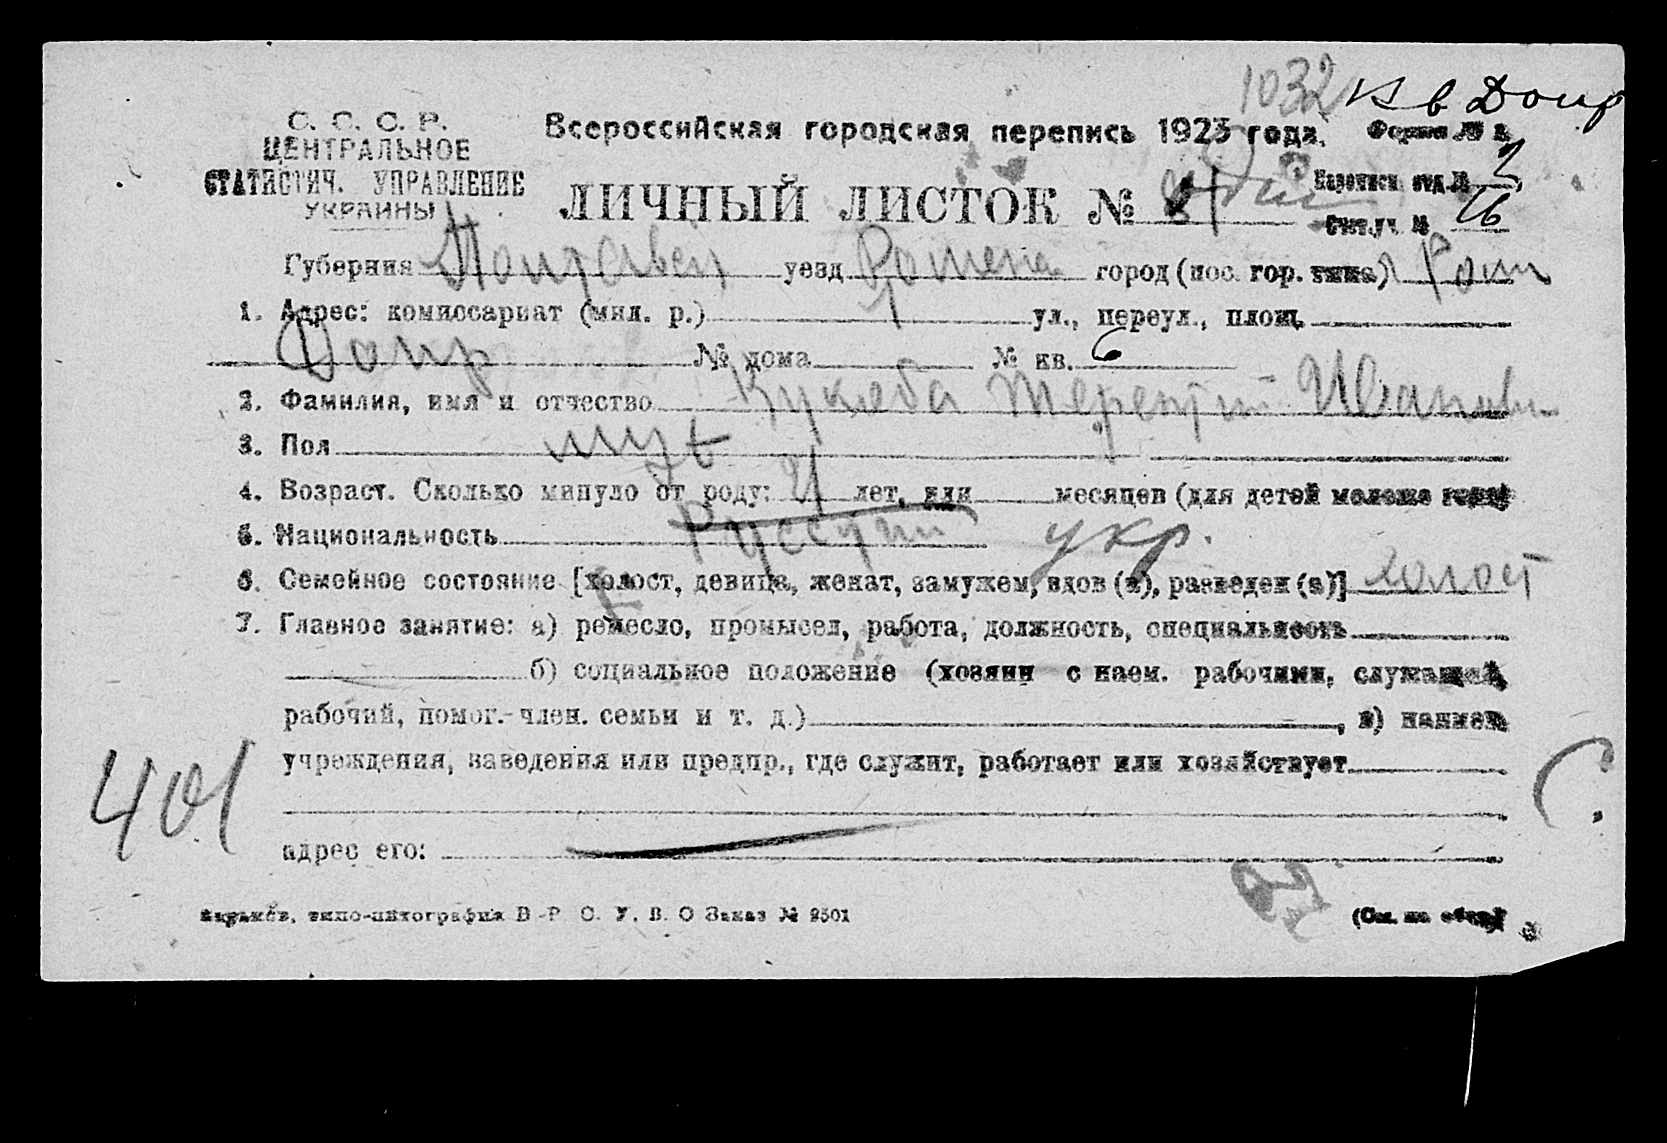 1032 В Допр
С. С. С. Р.
ЦЕНТРАЛЬНОЕ
СТАТИСТИЧ. УПРАВЛЕНИЕ
УКРАИНЫ
Всероссийская городская перепись 1923 года.
Форма №
ЛИЧНЫЙ ЛИСТОК №
Переписн. отд. № 2
Счетн. уч. № 16
Губерния Полтавск уезд Роменск город (пос. гор. типа) Ром
1. Адрес: комиссариат (мил. р.) ул., переул., площ.
Допр № дома № кв. 6
2. Фамилия, имя и отчество Кукоба Терентий Иванович
3. Пол муж
4. Возраст. Сколько минуло от роду: 21 лет, или месяцев (для детей моложе года)
5. Национальность Русский укр.
6. Семейное состояние [холост, девица, женат, замужем, вдов (а), разведен (а)] холост
7. Главное занятие: а) ремесло, промысел, работа, должность, специальность
б) социальное положение (хозяин с наем. рабочими, служащий,
рабочий, помог.-член. семьи и т. д.) , в) наимен.
учреждения, заведения или предпр., где служит, работает или хозяйствует
401
адрес его:
Харьков, типо-литография В-Р С. У. В. О Заказ № 9501
(См. на обор.)